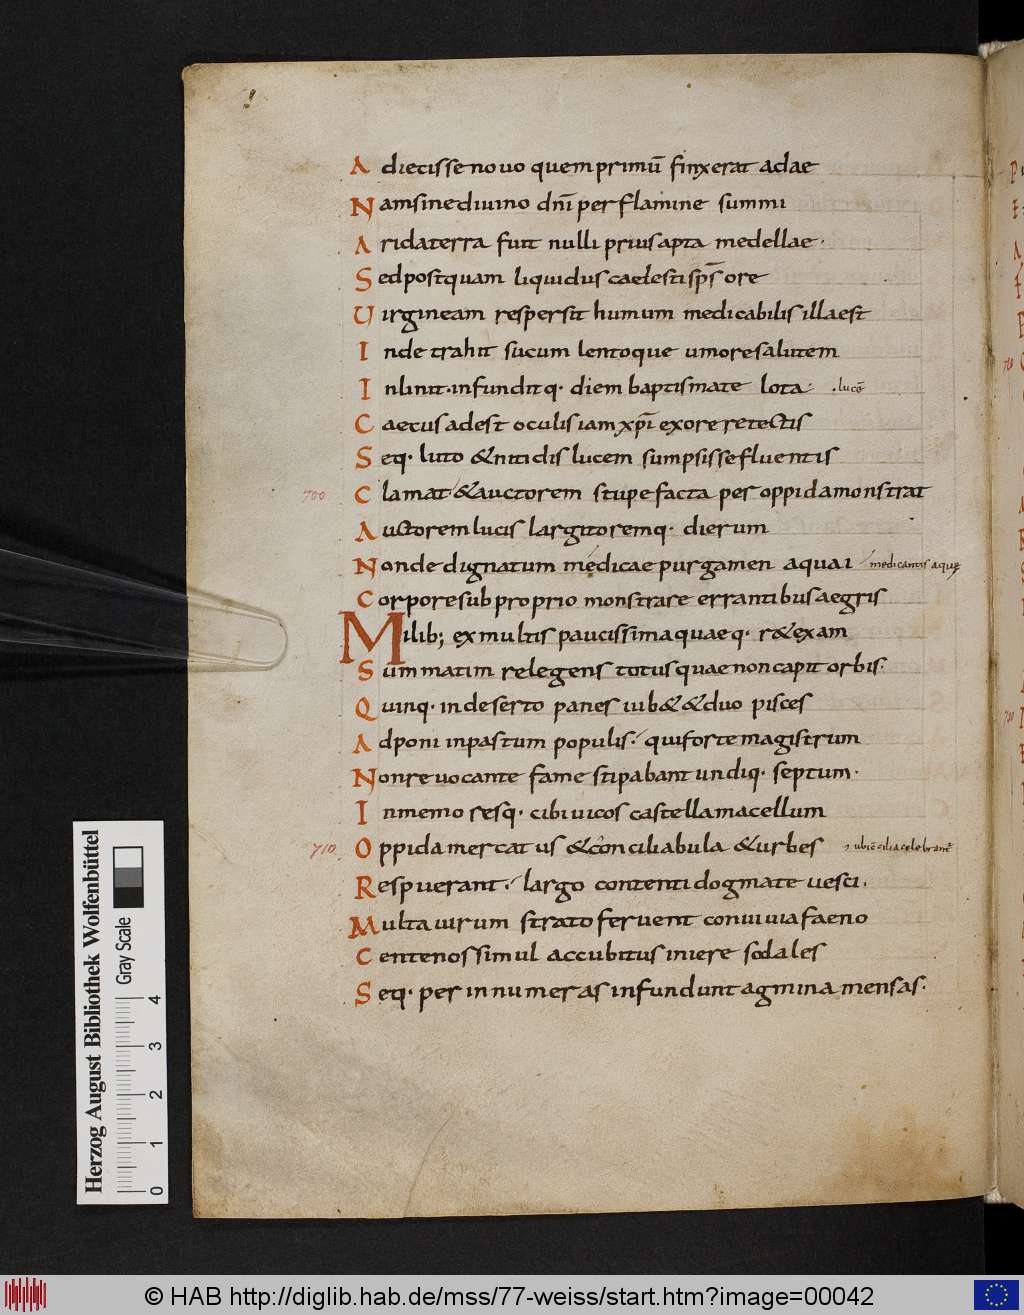 Adiecisse novo quem primū finxerat adae
Nam sine divino dn̄i per flamine summi
Arida terra fuit nulli prius apta medellae·
Sed postquam liquidus caelesti sp̄s ore
Virgineam respersit humum medicabilis illa est
Inde trahit sucum lentoque umore salutem
Inlinit·infunditq· diem baptismate lota· ·lucē
Caecus adest oculis iam xp̄i ex ore retectis
Seq· luto & nitidis lucem sumpsisse fluentis
700 Clamat & auctorem stupefacta per oppida monstrat
Auctorem lucis largitoremq· dierum
Non dedignatum medicae purgamen aquai medicantis aquę
Corpore sub proprio monstrare errantibus aegris
Milib; ex multis paucissima quaeq· r&exam
Summatim relegens totus quae non capit orbis·
Quinq· in deserto panes iub& & duo pisces
Adponi in pastum populis· qui forte magistrum
Non revocante fame stipabant undiq· septum·
Inmemoresq· cibi vicos castella macellum
710 Oppida mercatus & conciliabula & urbes
Respuerant· largo contenti dogmate vesci·
Multa virum strato fervent convivia faeno
Centenos simul accubitus iniere sodales
Seq· per innumeras infundunt agmina mensas·
Herzog August Bibliothek Wolfenbüttel
Gray Scale
0 1 2 3 4
© HAB http://diglib.hab.de/mss/77-weiss/start.htm?image=00042